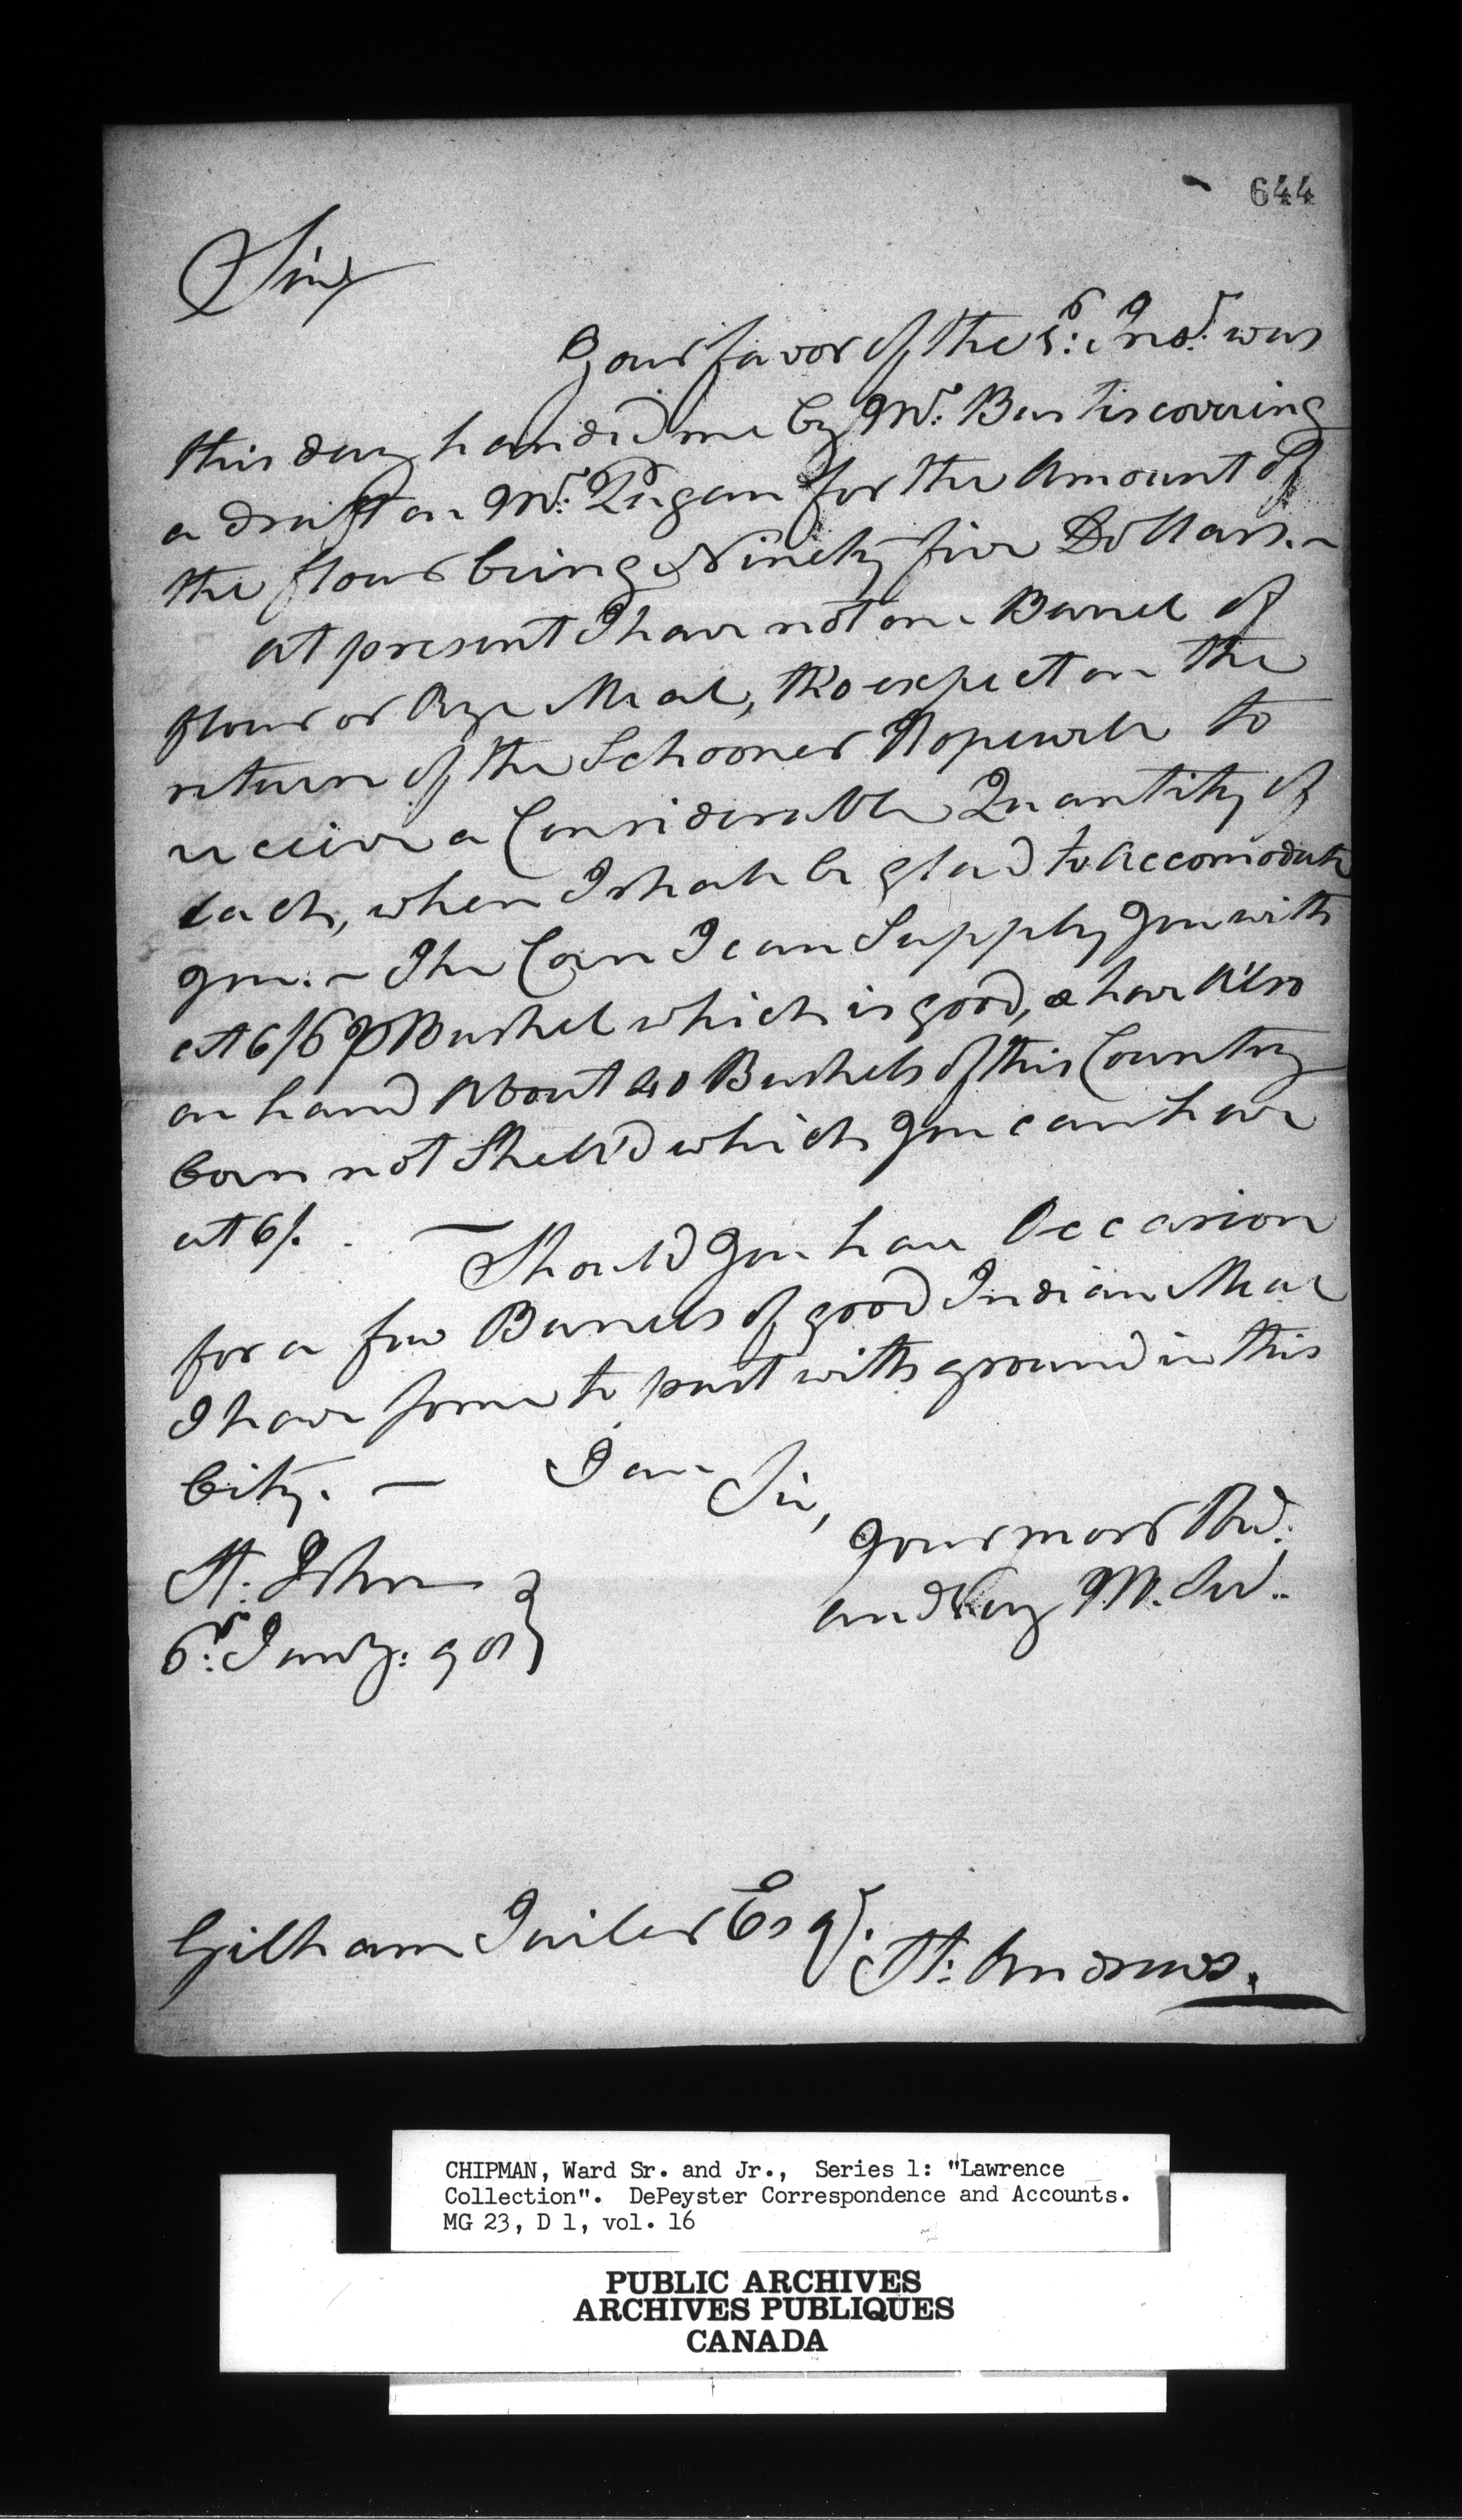 644
Sir,
Your favor of the 5th: Inst: was
this day handed me by Mr. Bustis covering
a draft on Mr. Pagan for the Amount of
the flour being Ninety five Dollars. ~
at present I have not one Barrel of
flour or Rye Meal, tho expect on the
return of the Schooner Hopewell to
receive a Considerable Quantity of
each, when I shall be glad to Accomodate
you. ~ The Corn I can Supply you with
at 6/6 ⅌ Bushel which is good, & have Also
on hand About 40 Bushels of this Country
Corn not Shell'd which you can have
at 6/. . —
Should you have Occasion
for a few Barrels of good Indian Meal
I have some to part with ground in this
City. — I am Sir,
Your most Hu:
and Very M. Sev..
St. John }
6th: Janry: 90 }
Esqr. St: Andrews.
CHIPMAN, Ward Sr. and Jr., Series 1: "Lawrence
Collection". DePeyster Correspondence and Accounts.
MG 23, D 1, vol. 16
PUBLIC ARCHIVES
ARCHIVES PUBLIQUES
CANADA